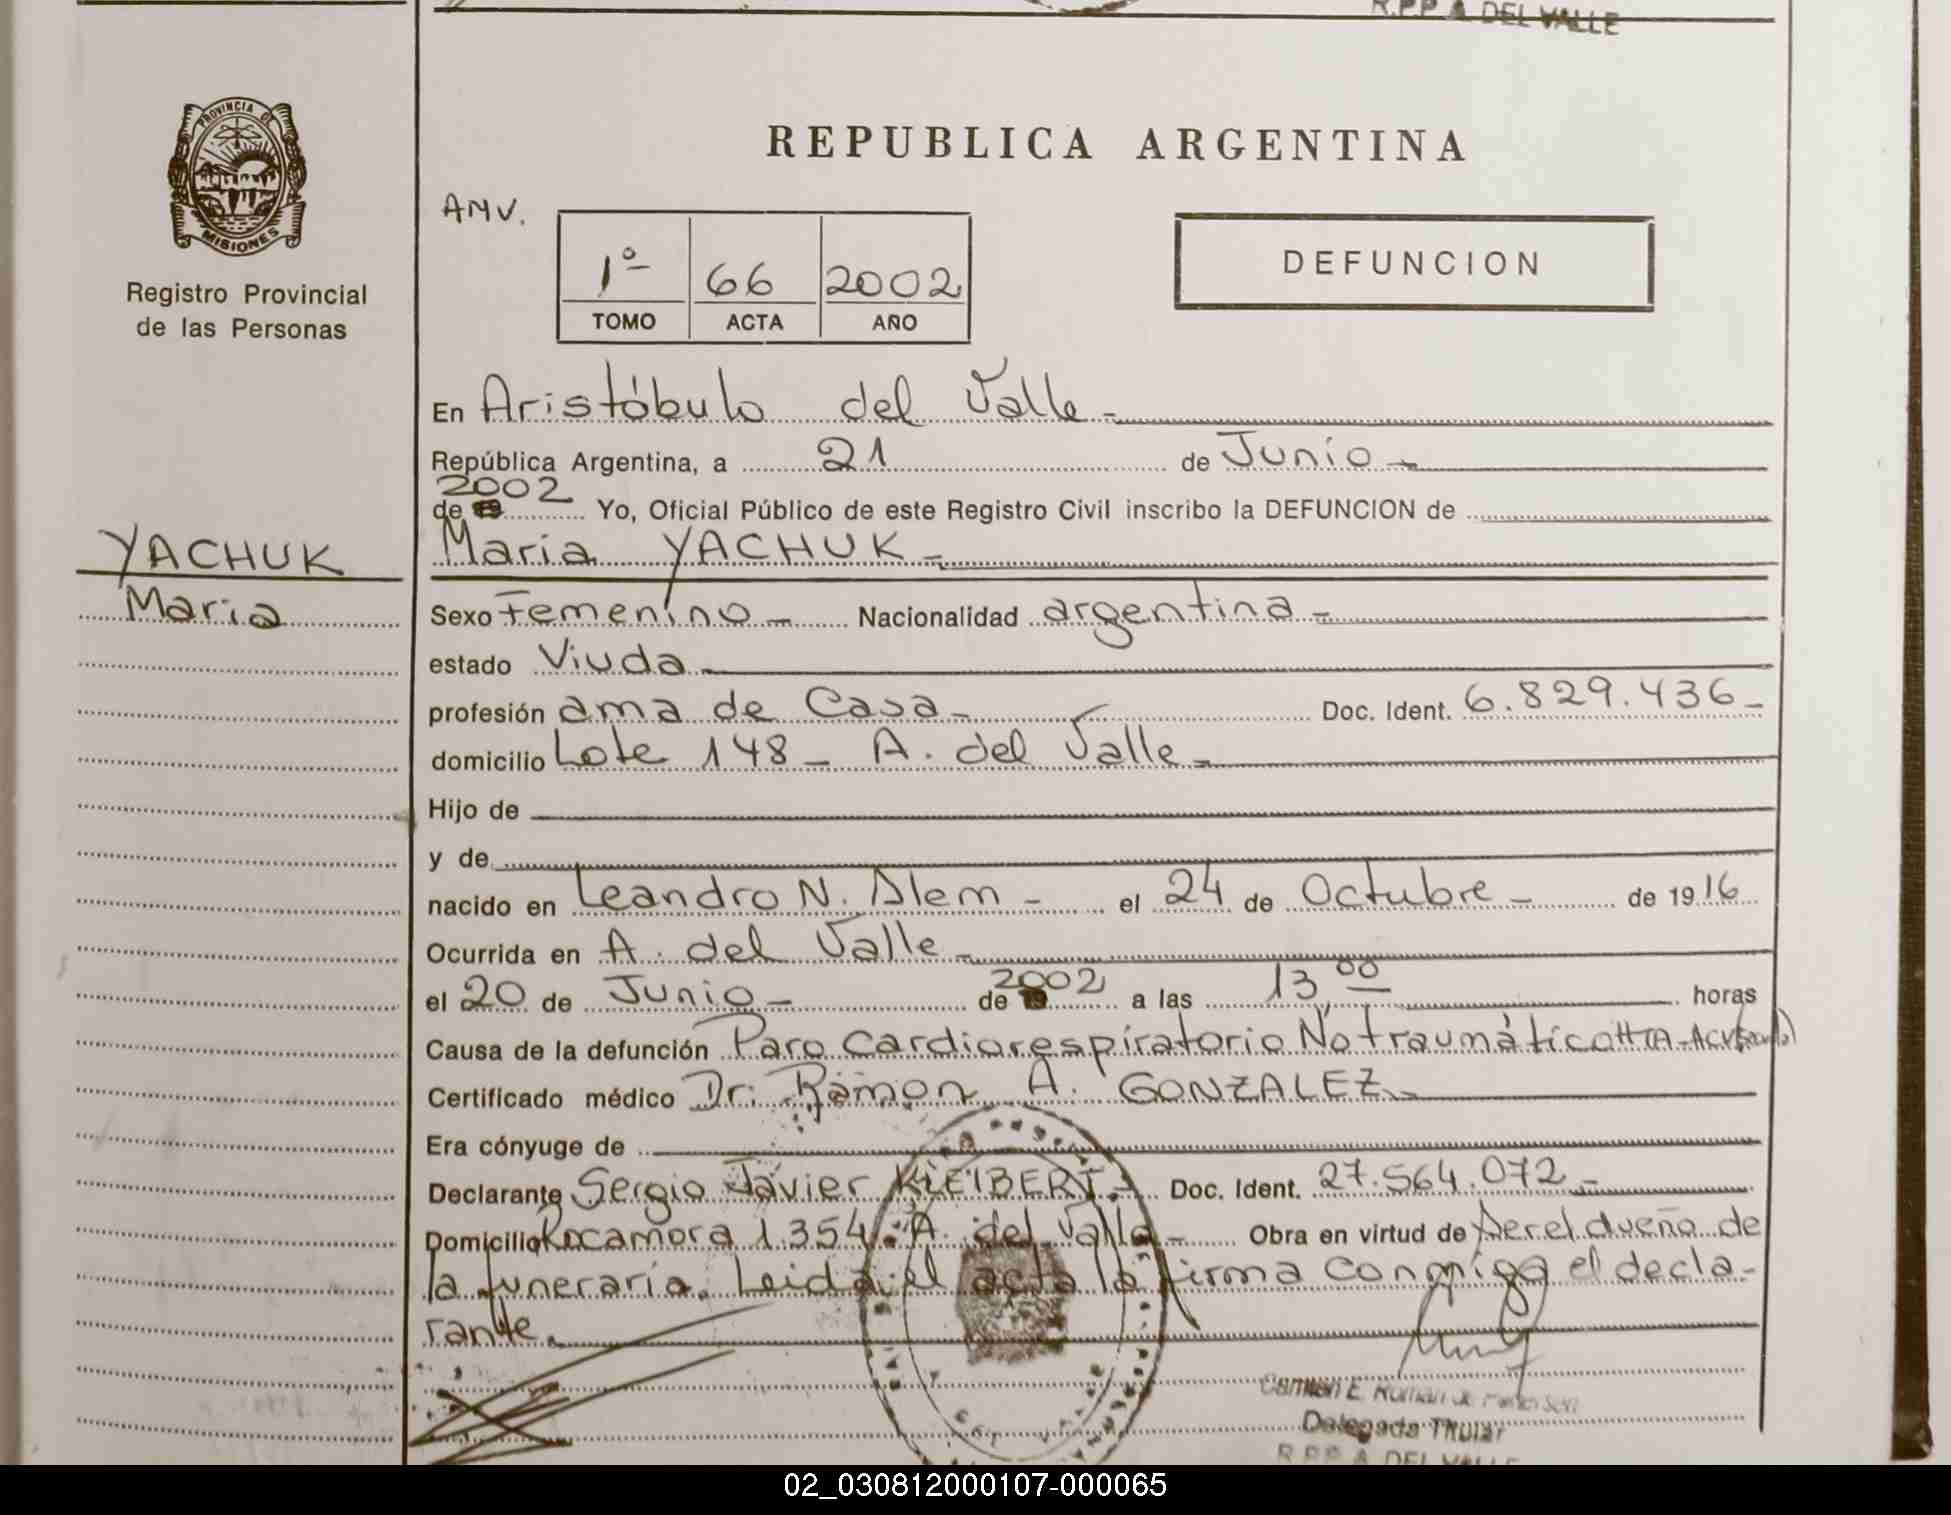 R.P.P. A DEL VALLE
PROVINCIA DE
MISIONES
Registro Provincial
de las Personas
REPUBLICA ARGENTINA
AMV.
1º 66 2002
TOMO ACTA AÑO
DEFUNCION
En Aristóbulo del Valle -
República Argentina, a 21 de Junio -
2002
de 19 Yo, Oficial Público de este Registro Civil inscribo la DEFUNCION de
YACHUK
Maria
Maria YACHUK -
Sexo Femenino - Nacionalidad argentina -
estado Viuda -
profesión ama de Casa - Doc. Ident. 6.829.436 -
domicilio Lote 148 - A. del Valle -
Hijo de
y de
nacido en Leandro N. Alem - el 24 de Octubre - de 1916
Ocurrida en A. del Valle -
el 20 de Junio - de 19 2002 a las 13,00 horas
Causa de la defunción Paro Cardiorespiratorio No traumático HTA - ACV
Certificado médico Dr. Ramon A. GONZALEZ -
Era cónyuge de
Declarante Sergio Javier KLEIBERT. - Doc. Ident. 27.564.072 -
Domicilio Rocamora 1354 - A. del Valle - Obra en virtud de Ser el dueño de
la funeraria. Leida el acta la firma conmigo el decla-
rante.
Delegada Titular
R.P.P. A. DEL VALLE
02_030812000107-000065